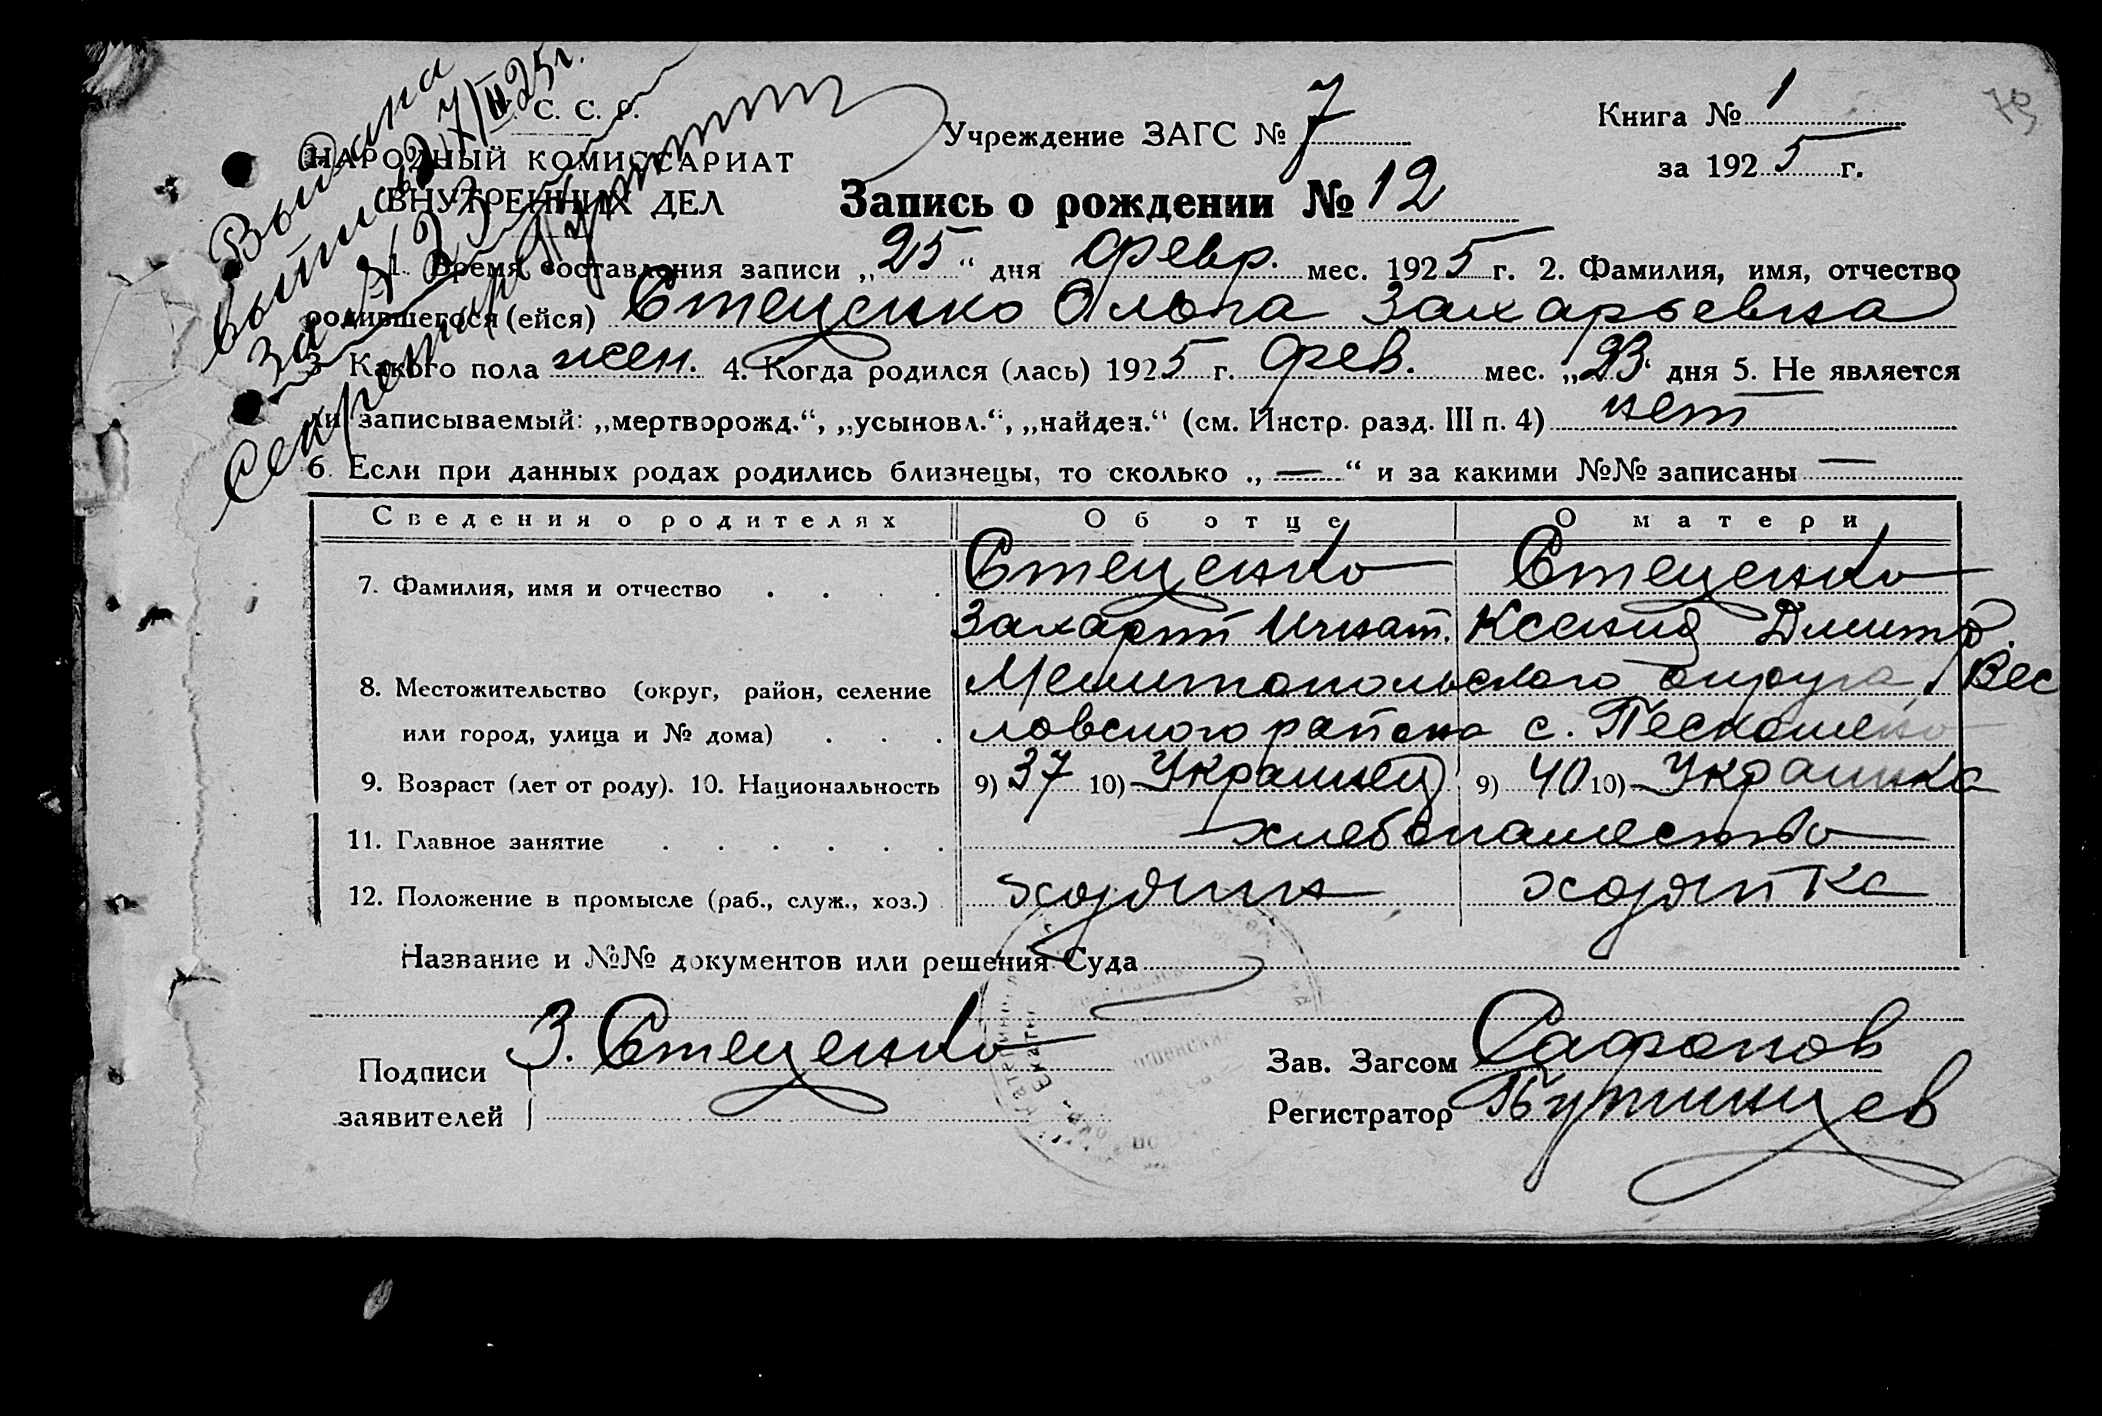 Выдана
выпись 27/II 25 г.
за № 23
Секретарь
С. С. Р.
НАРОДНЫЙ КОМИССАРИАТ
ВНУТРЕННИХ ДЕЛ
Учреждение ЗАГС № 7
Книга № 1
за 1925 г.
Запись о рождении № 12
1. Время составления записи „25“ дня февр. мес. 1925 г. 2. Фамилия, имя, отчество
родившегося (ейся) Стеценко Ольга Захарьевна
3 Какого пола жен. 4. Когда родился (лась) 1925 г. фев. мес. „23“ дня 5. Не является
ли записываемый: „мертворожд.“, „усыновл.“, „найден.“ (см. Инстр. разд. III п. 4) нет
6. Если при данных родах родились близнецы, то сколько „ — “ и за какими №№ записаны —
Сведения о родителях Об отце О матери
7. Фамилия, имя и отчество . . . . Стеценко Стеценко
Захарий Игнат. Ксения Дмитр.
8. Местожительство (округ, район, селение Мелитопольского округа, Весе
или город, улица и № дома) . . . ловского района с. Пескошено
9. Возраст (лет от роду). 10. Национальность 9) 37 10) Украинец 9) 40 10) Украинка
11. Главное занятие . . . . . . хлебопашество
12. Положение в промысле (раб., служ., хоз.) хозяин хозяйка
Название и №№ документов или решения Суда
Подписи З. Стеценко
заявителей
Зав. Загсом Сафонов
Регистратор